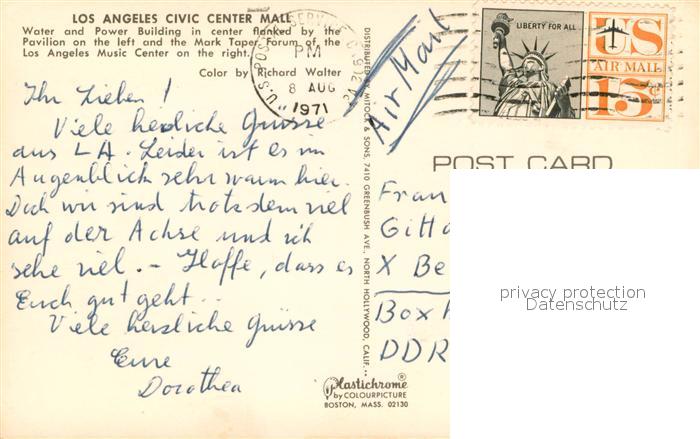 LOS ANGELES CIVIC CENTER MALL
Water and Power Building in center flanked by the
Pavilion on the left and the Mark Taper Forum of the
Los Angeles Music Center on the right.
Color by Richard Walter
U.S. POSTAL SERVICE
PM
8 AUG
1971
LIBERTY FOR ALL
US
AIR MAIL
15c
Air Mail
Ihr Lieben!
Viele herzliche Grüsse
aus LA. Leider ist es im
Augenblick sehr warm hier.
Doch wir sind trotzdem viel
auf der Achse und ich
sehe viel. - Hoffe, dass es
Euch gut geht..
Viele herzliche Grüsse
Eure
Dorothea
DISTRIBUTED BY MITOCK & SONS, 7410 GREENBUSH AVE., NORTH HOLLYWOOD, CALIF.
Plastichrome
by COLOURPICTURE
BOSTON, MASS. 02130
POST CARD
Fran
Gitta
X Be
Box
DDR
privacy protection
Datenschutz